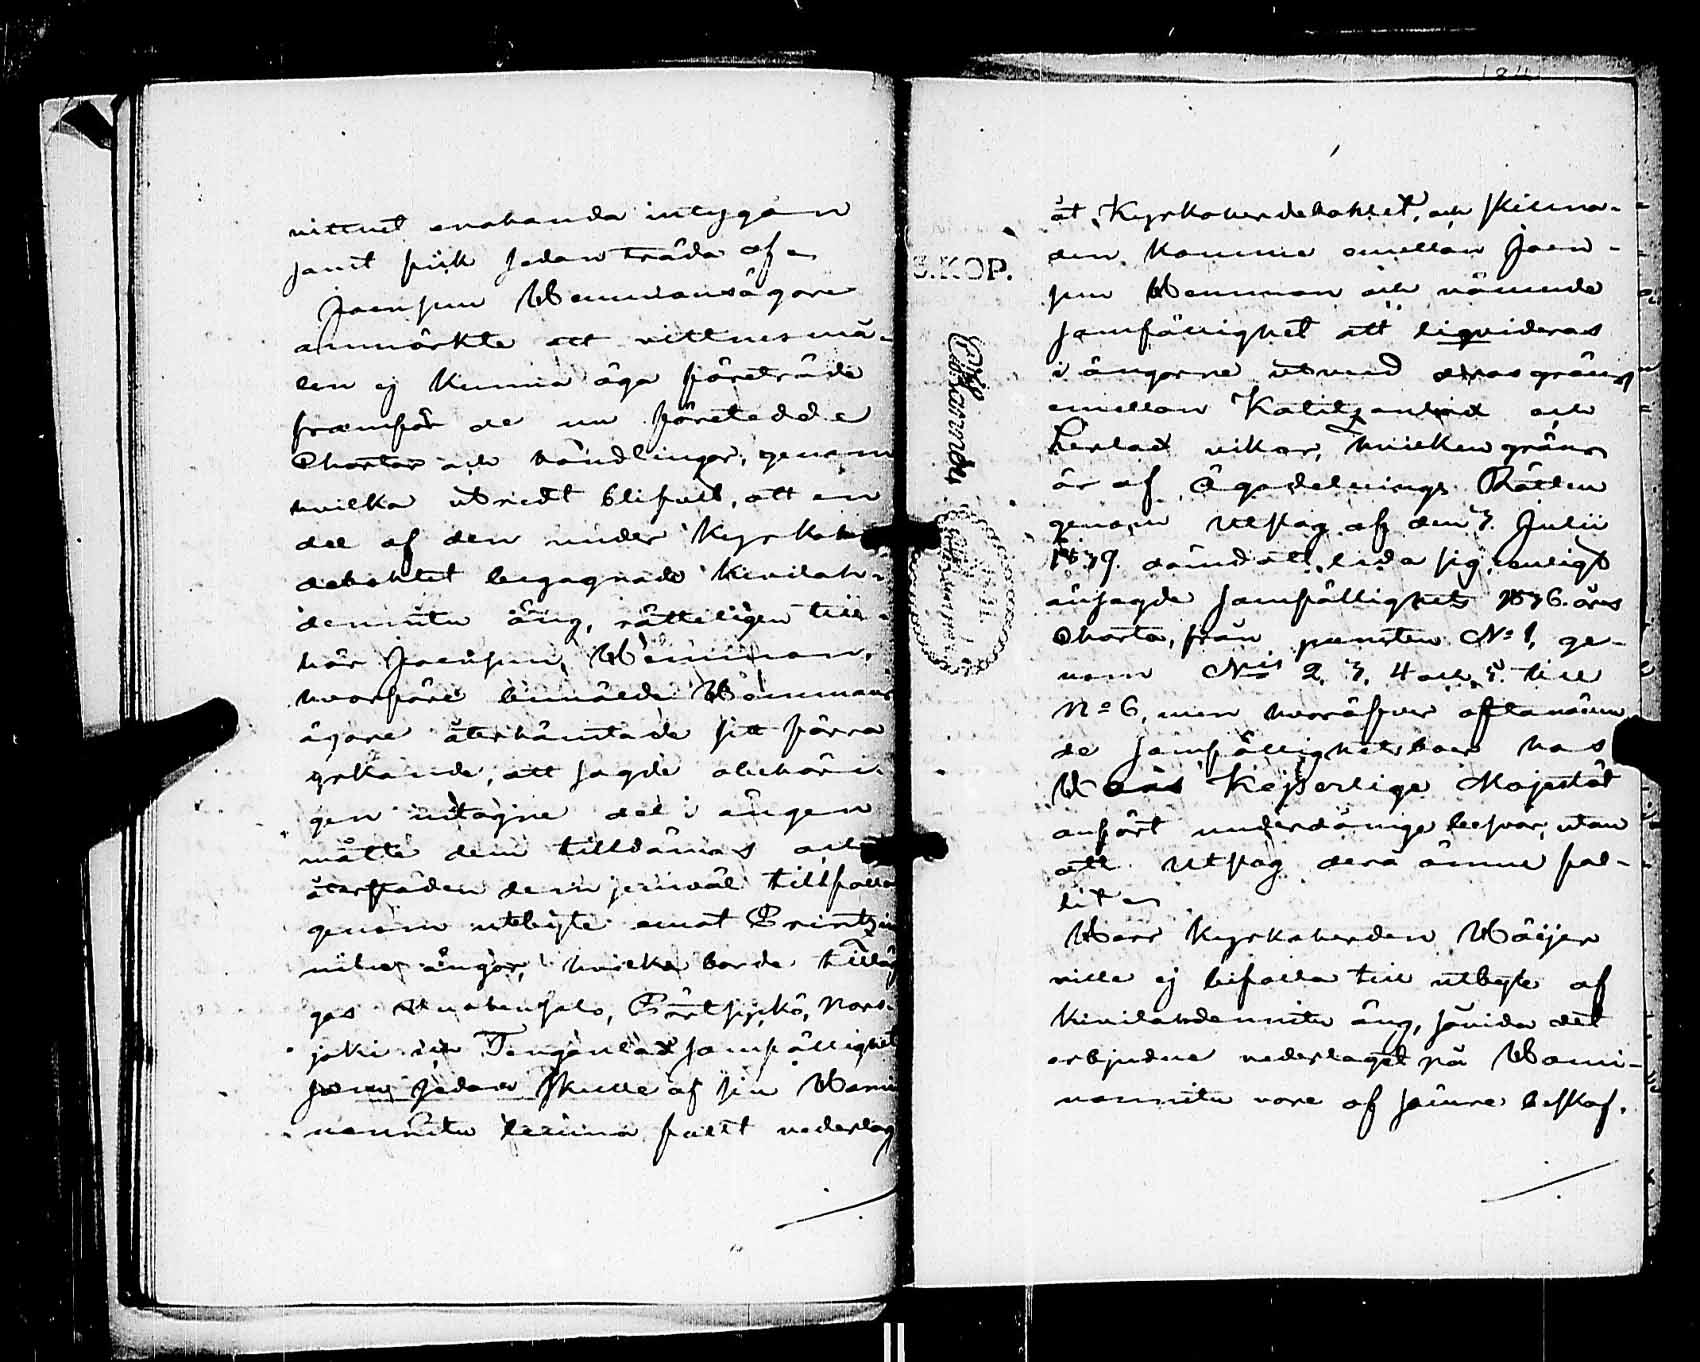 vittnet enahanda intygan
samt fick sedan träda af
Joensuu Wennivansägare
anmärkte att vittnesmå-
len ej kunna äga företräde
framför de nu företedde
Chartor och handlingar, genom
hvilka utredt blifvit, att en
del af den under Kyrkoher
debohlet begagnade Kivilah-
denniitu äng, rätteligen till-
hör Joensuu,
hvarföre bemälde
ägare återhämtade sitt förra
yrkande, att sagde obehöri-
gen intagne del i ängen
måtte dem tilldömas och
återstoden dem jemväl tillfalla
genom utbyte emot
ängar, hvilka borde tilläg
gas
joki och samfällighet
som sedan skulle af sin
niitu lemna fullt vederlag
184
S.KOP.
åt Kyrkoherdebohlet, och skilna-
den komma emellan Joen-
suu och nämnde
samfällighet att liqvideras
i ängarne utmed deras gräns
emellan och
vikar, hvilken gräns
är af Ägodelnings Rätten
genom Utslag af den 3. Julii
1839 dömd att leda sig, enligt
ansagde Samfällighets 1836 års
Charta, från puncten N:o 1, ge-
nom N:ris 2, 3, 4 och 5. till
N:o 6, men hvaröfver oftanämn
de Samfällighetsboer hos
Hans Kejserlige Majestät
anfört underdånige besvar, utan
att Utslag derå ännu fal-
lit
Herr Kyrkoherden
ville ej bifalla till utbyte af
Kivilahdenniitu äng, såvida det
erbjudne vederlaget på
niitu vore af sämre beskaf.